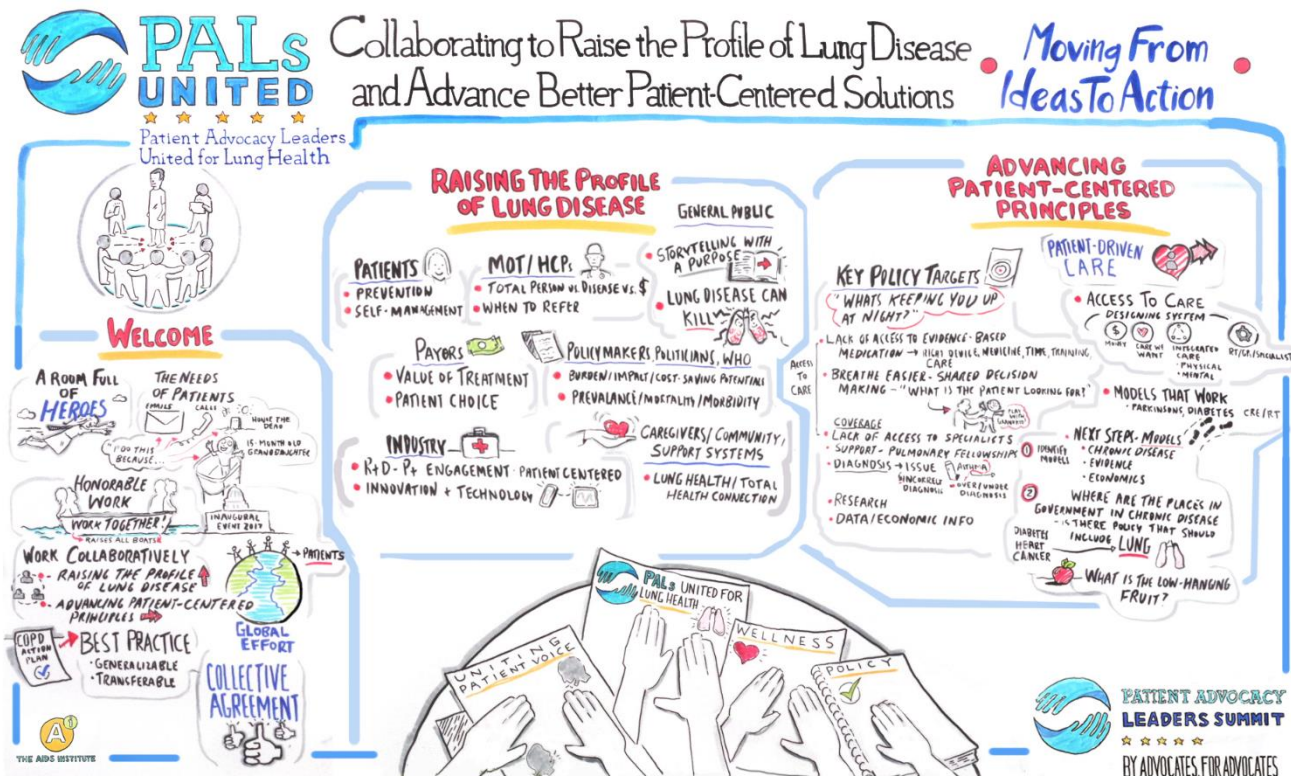 PALs
UNITED
Patient Advocacy Leaders
United for Lung Health
Collaborating to Raise the Profile of Lung Disease
and Advance Better Patient-Centered Solutions
Moving From
Ideas To Action
WELCOME
A ROOM FULL
OF
HEROES
THE NEEDS
OF PATIENTS
EMAILS
CALLS
HONOR THE
DEAD
I DO THIS
BECAUSE...
15-MONTH OLD
GRANDDAUGHTER
HONORABLE
WORK
WORK TOGETHER!
RAISES ALL BOATS
INAUGURAL
EVENT 2017
WORK COLLABORATIVELY
- RAISING THE PROFILE
OF LUNG DISEASE
- ADVANCING PATIENT-CENTERED
PRINCIPLES
PATIENTS
GLOBAL
EFFORT
COPD
ACTION
PLAN
BEST PRACTICE
• GENERALIZABLE
• TRANSFERABLE
COLLECTIVE
AGREEMENT
A
THE AIDS INSTITUTE
RAISING THE PROFILE
OF LUNG DISEASE
PATIENTS
• PREVENTION
• SELF-MANAGEMENT
MOT/HCPs
• TOTAL PERSON vs. DISEASE vs. $
• WHEN TO REFER
GENERAL PUBLIC
• STORYTELLING WITH
A PURPOSE
• LUNG DISEASE CAN
KILL
PAYORS
• VALUE OF TREATMENT
• PATIENT CHOICE
POLICYMAKERS, POLITICIANS, WHO
• BURDEN/IMPACT/COST-SAVING POTENTIAL
• PREVALANCE/MORTALITY/MORBIDITY
INDUSTRY
• R+D - P+ ENGAGEMENT - PATIENT CENTERED
• INNOVATION + TECHNOLOGY
CAREGIVERS/COMMUNITY,
SUPPORT SYSTEMS
• LUNG HEALTH/TOTAL
HEALTH CONNECTION
ADVANCING
PATIENT-CENTERED
PRINCIPLES
KEY POLICY TARGETS
"WHATS KEEPING YOU UP
AT NIGHT?"
ACCESS
TO
CARE
• LACK OF ACCESS TO EVIDENCE-BASED
MEDICATION → RIGHT DEVICE, MEDICINE, TIME, TRAINING,
CARE
• BREATHE EASIER - SHARED DECISION
MAKING - "WHAT IS THE PATIENT LOOKING FOR?"
COVERAGE
• LACK OF ACCESS TO SPECIALISTS
• SUPPORT - PULMONARY FELLOWSHIPS
• DIAGNOSIS → ISSUE
INCORRECT
DIAGNOSIS
ASTHMA
OVER/UNDER
DIAGNOSIS
• RESEARCH
• DATA/ECONOMIC INFO
PATIENT-DRIVEN
CARE
• ACCESS TO CARE
DESIGNING SYSTEM
$
MONEY
CARE WE
WANT
INTEGRATED
CARE
• PHYSICAL
• MENTAL
RT/GP/SPECIALIST
• MODELS THAT WORK
• PARKINSONS, DIABETES CRE/RT
• NEXT STEPS - MODELS
1 IDENTIFY
MODELS
• CHRONIC DISEASE
• EVIDENCE
• ECONOMICS
2 WHERE ARE THE PLACES IN
GOVERNMENT IN CHRONIC DISEASE
- IS THERE POLICY THAT SHOULD
INCLUDE LUNG
DIABETES
HEART
CANCER
- WHAT IS THE LOW-HANGING
FRUIT?
UNITING
PATIENT VOICE
PALs UNITED FOR
LUNG HEALTH
WELLNESS
POLICY
PATIENT ADVOCACY
LEADERS SUMMIT
BY ADVOCATES, FOR ADVOCATES